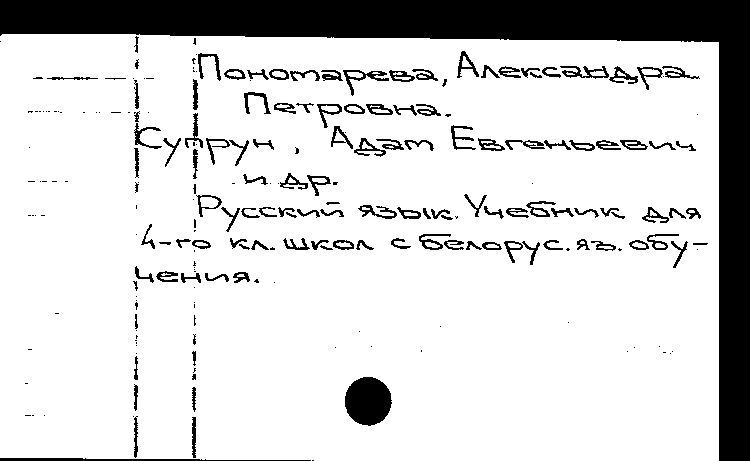 Пономарева, Александра
Петровна.
Супрун, Адам Евгеньевич
и др.
Русский язык. Учебник для
4-го кл. школ с белорус. яз. обу-
чения.